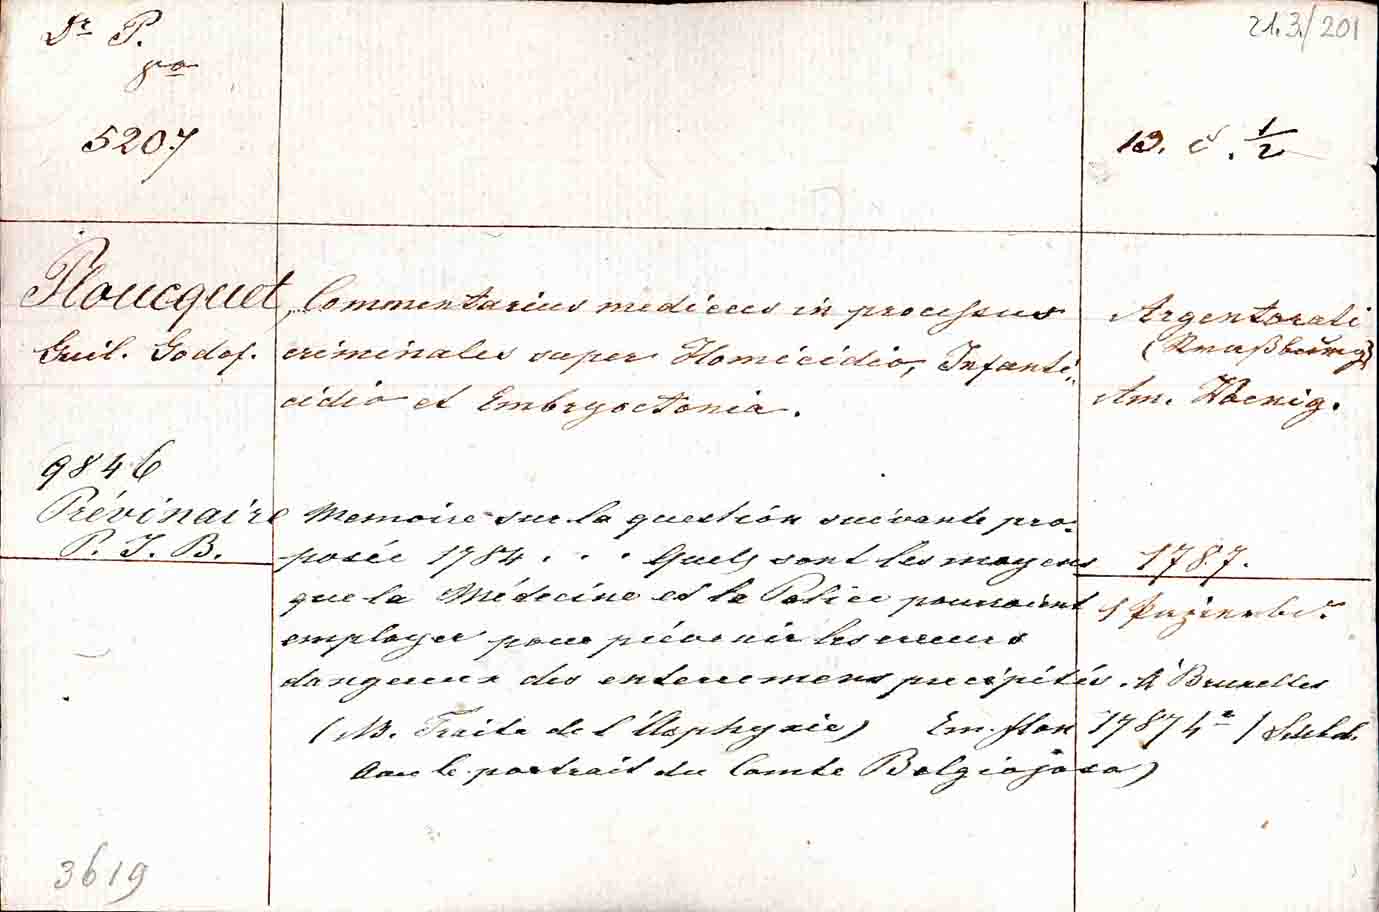 Dr P.
pa
5207
21.3./201
13. č. 1/2
Ploucquet,
Guil. Godof.
Commentarius medicus in processus
criminales super Homicidio, Infanti-
cidio et Embryoctonia.
Argentorati
(Straßburg)
Am. Koenig.
1787.
9846
Prévinaire
P. J. B.
Memoire sur la question suivante pro-
posée 1784 . . . Quels sont les moyens
que la Médecine et la Police pourroient
employer pour prévenir les erreurs
dangereux des enterremens précipités. à Bruxelles
(NB. Traite de l'Asphyxie) Em. flon 1787 4°
Avec le portrait du Comte Belgiojoso)
3619